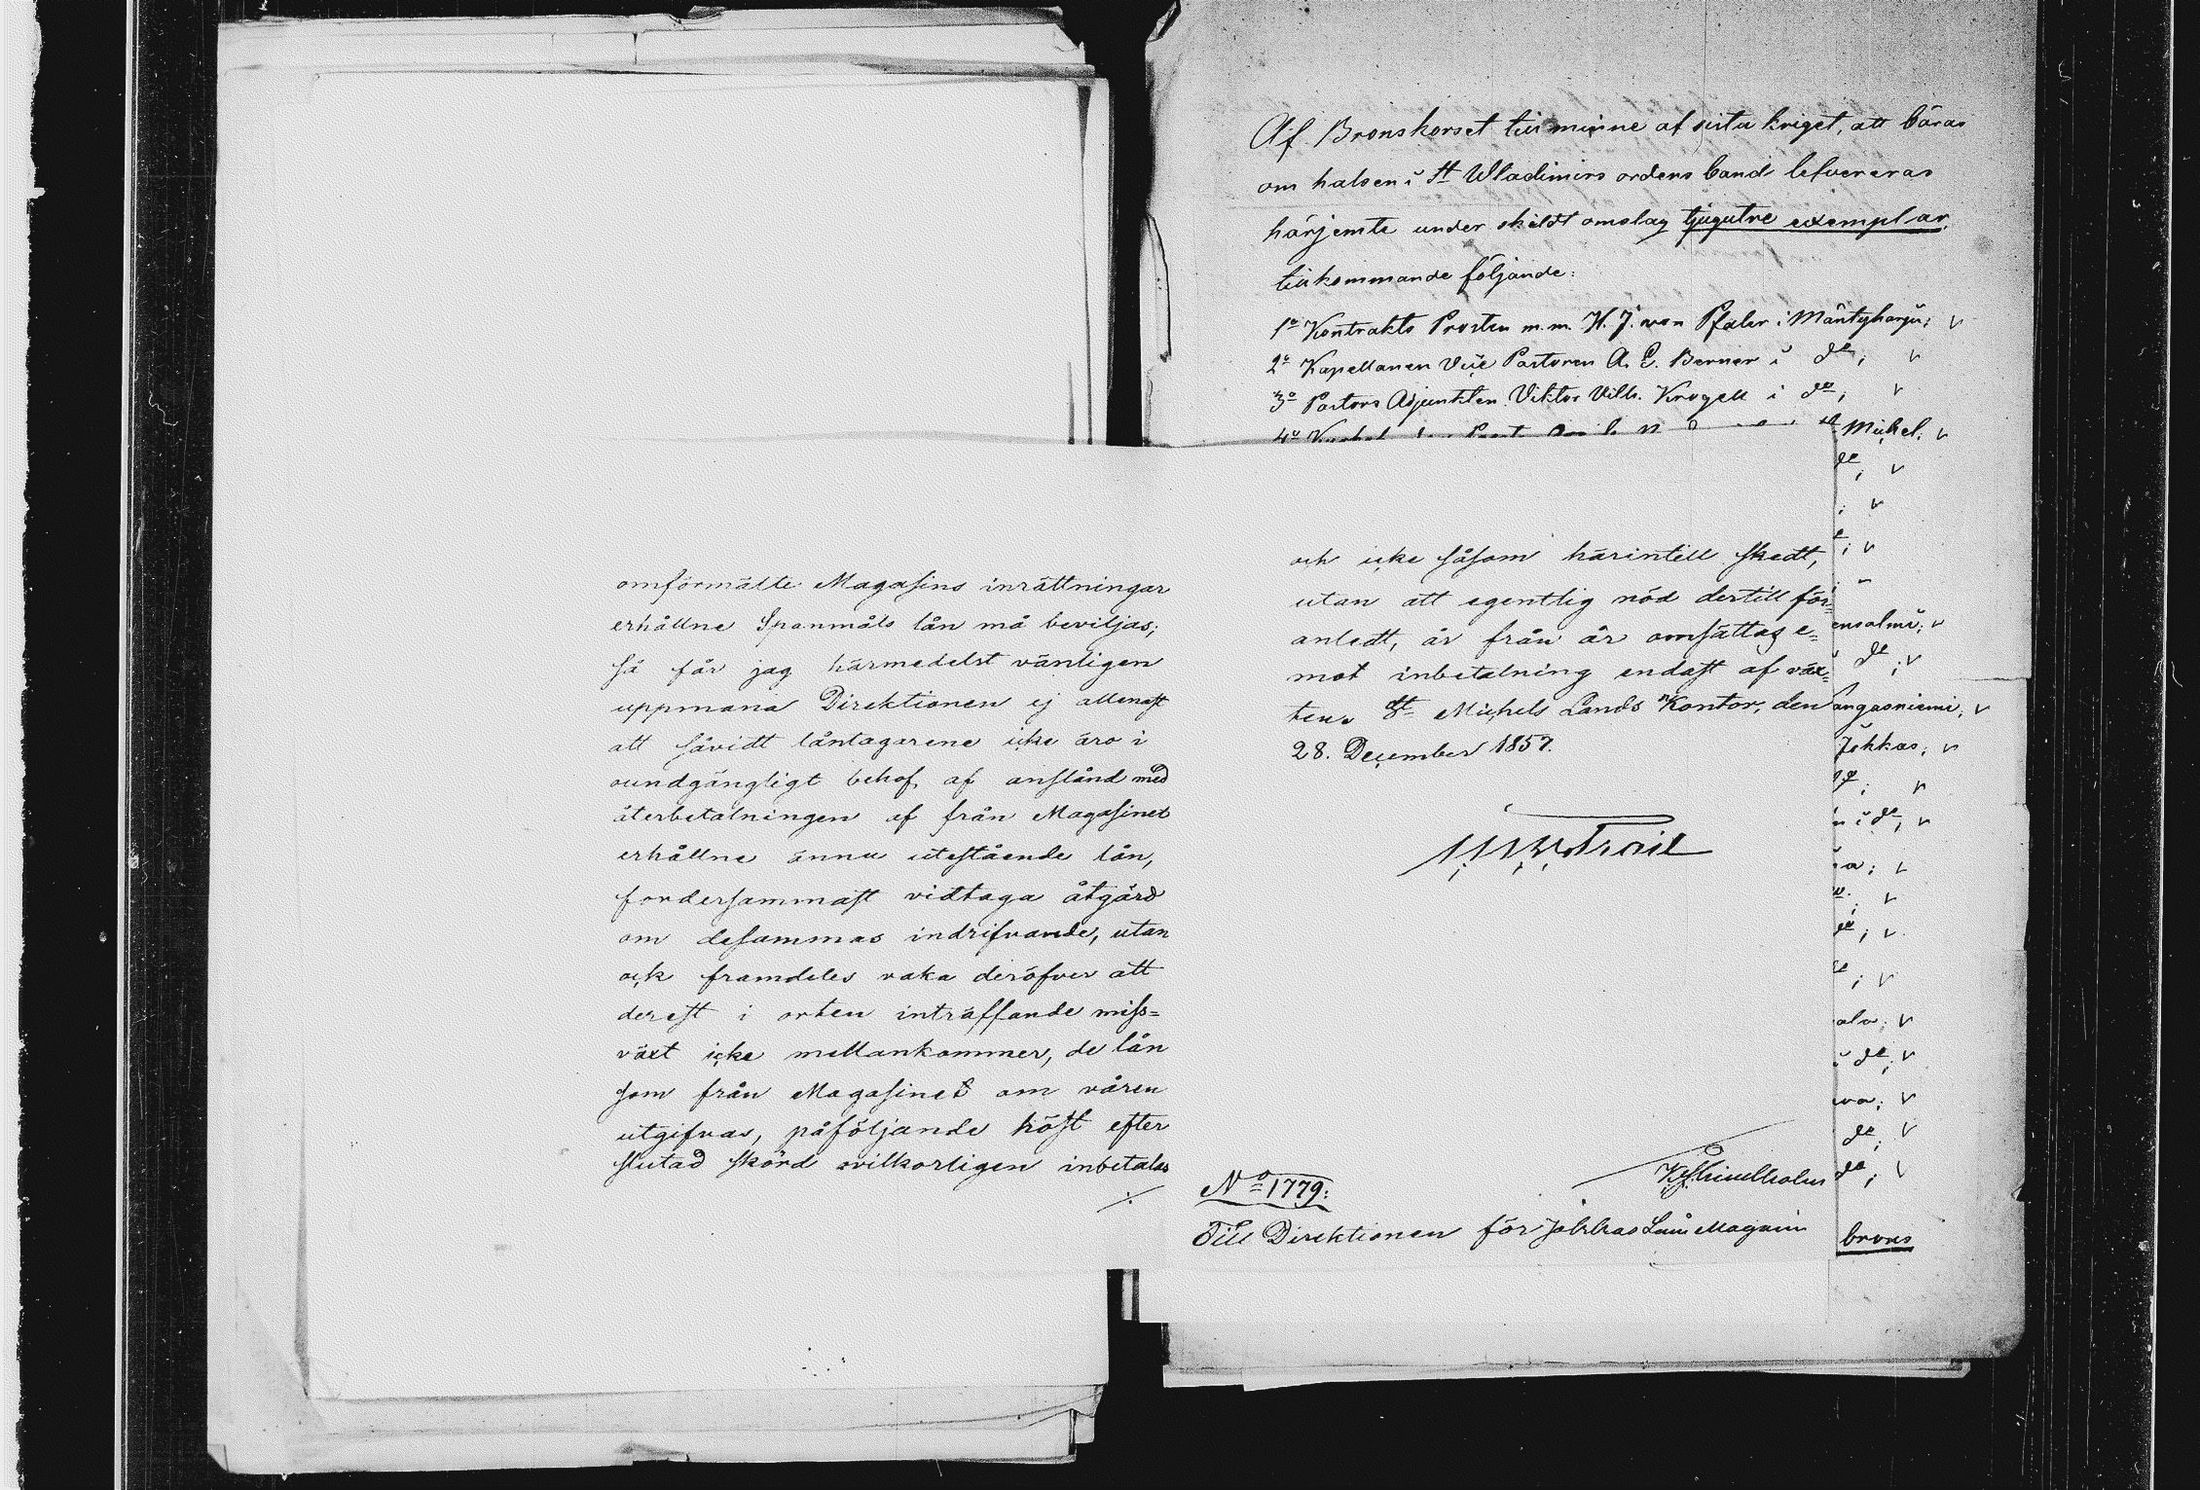 omförmälte Magasins inrättningar
erhållne Spanmåls lån må beviljas;
så får jag härmedelst vänligen
uppmana Direktionen ej allenast
att såvidt låntagarene icke äro i
oundgängligt behof af anstånd med
återbetalningen af från Magasinet
erhållne ännu utestående lån,
fordersammast vidtaga åtgärd
om desammas indrifvande, utan
ock framdeles vaka deröfver att
derest i orten inträffande miss=
växt icke mellankommer, de lån
som från Magasinet om våren
utgifvas, påföljande höst efter
slutad skörd ovilkorligen inbetalas
./.
Af Bronskorset till minne af sista kriget, att bäras
om halsen i St Wladimirs ordens band lefvereras
härjemte under skildt omslag tjugutre exemplar,
tillkommande följande:
1o Kontrakts Prosten m.m. H. J. von Pfaler i Mäntyharju; v
2o Kapellanen Vice Pastoren A. E. Berner i do; v
3o Pastors Adjunkten Viktor Vilh. Krogell i do; v
4o St Michel; v
do; v
; v
; v
ensalmi; v
do; v
angasniemi; v
Jokkas; v
do; v
n i do; v
a; v
; v
do; v
; v
ala; v
i do; v
va; v
do; v
do; v
brons
och icke såsom härintill skedt,
utan att egentlig nöd dertill för=
anledt, år från år omsättas e=
mot inbetalning endast af väx=
ten. St Michels Lands Kontor, den
28. December 1857.
No 1779:
Till Direktionen för Jokkas Låne Magasin